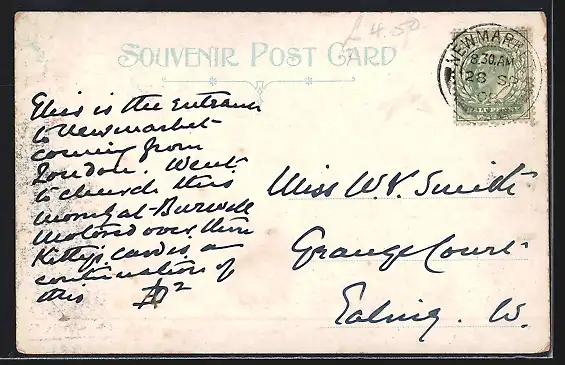 £4.50
SOUVENIR POST CARD
NEWMARK
8.30AM
28 SP
This is the entrance
to Newmarket
coming from
London. Went
to church this
morng at Burwell
Motored over then
Kitty's card is a
continuation of
this
Miss W.V. Smith
Grange Court
Ealing. W.